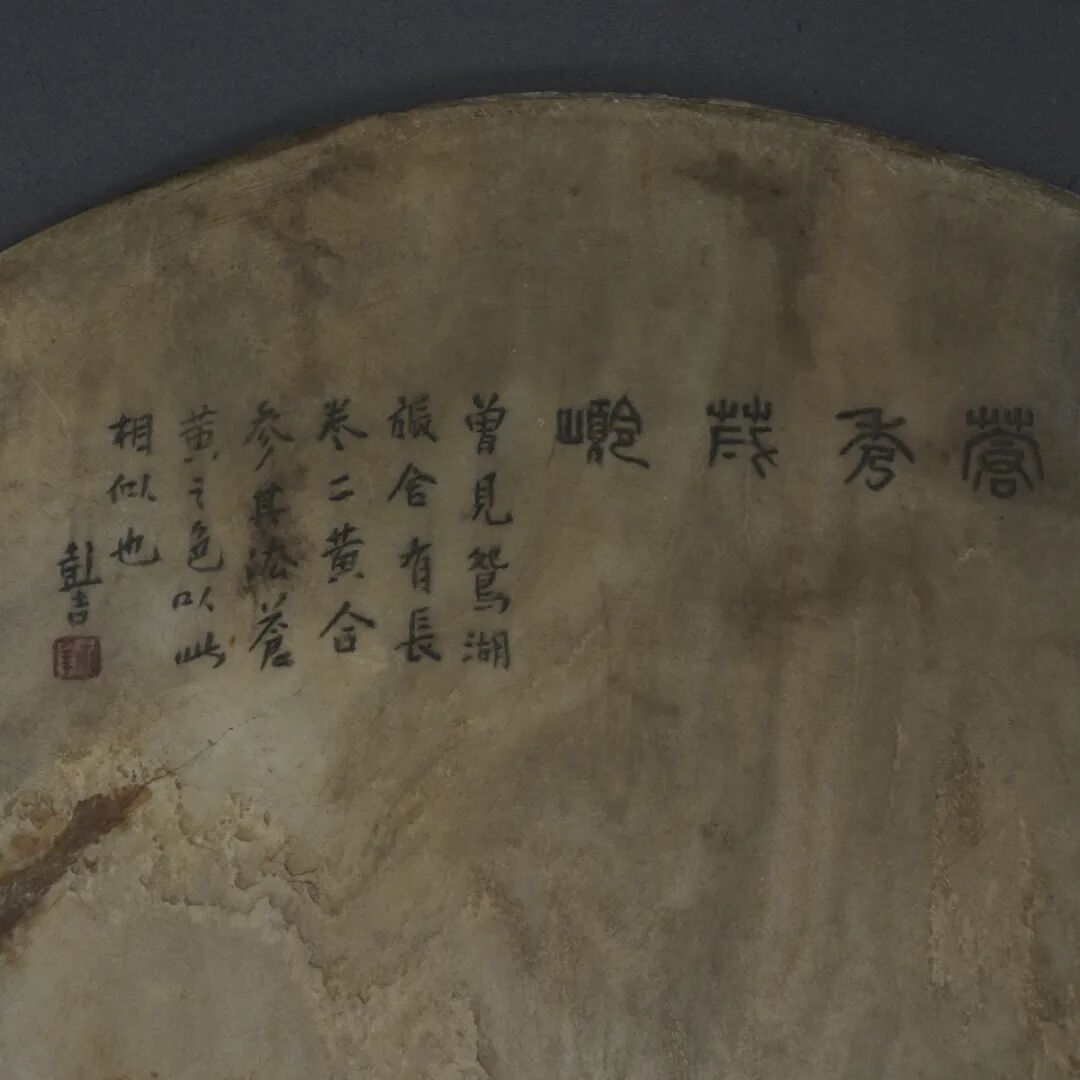 蒼秀
曾見鴛湖
張舍有長
卷二黃合
參其法蒼
黃之色以此
相似也